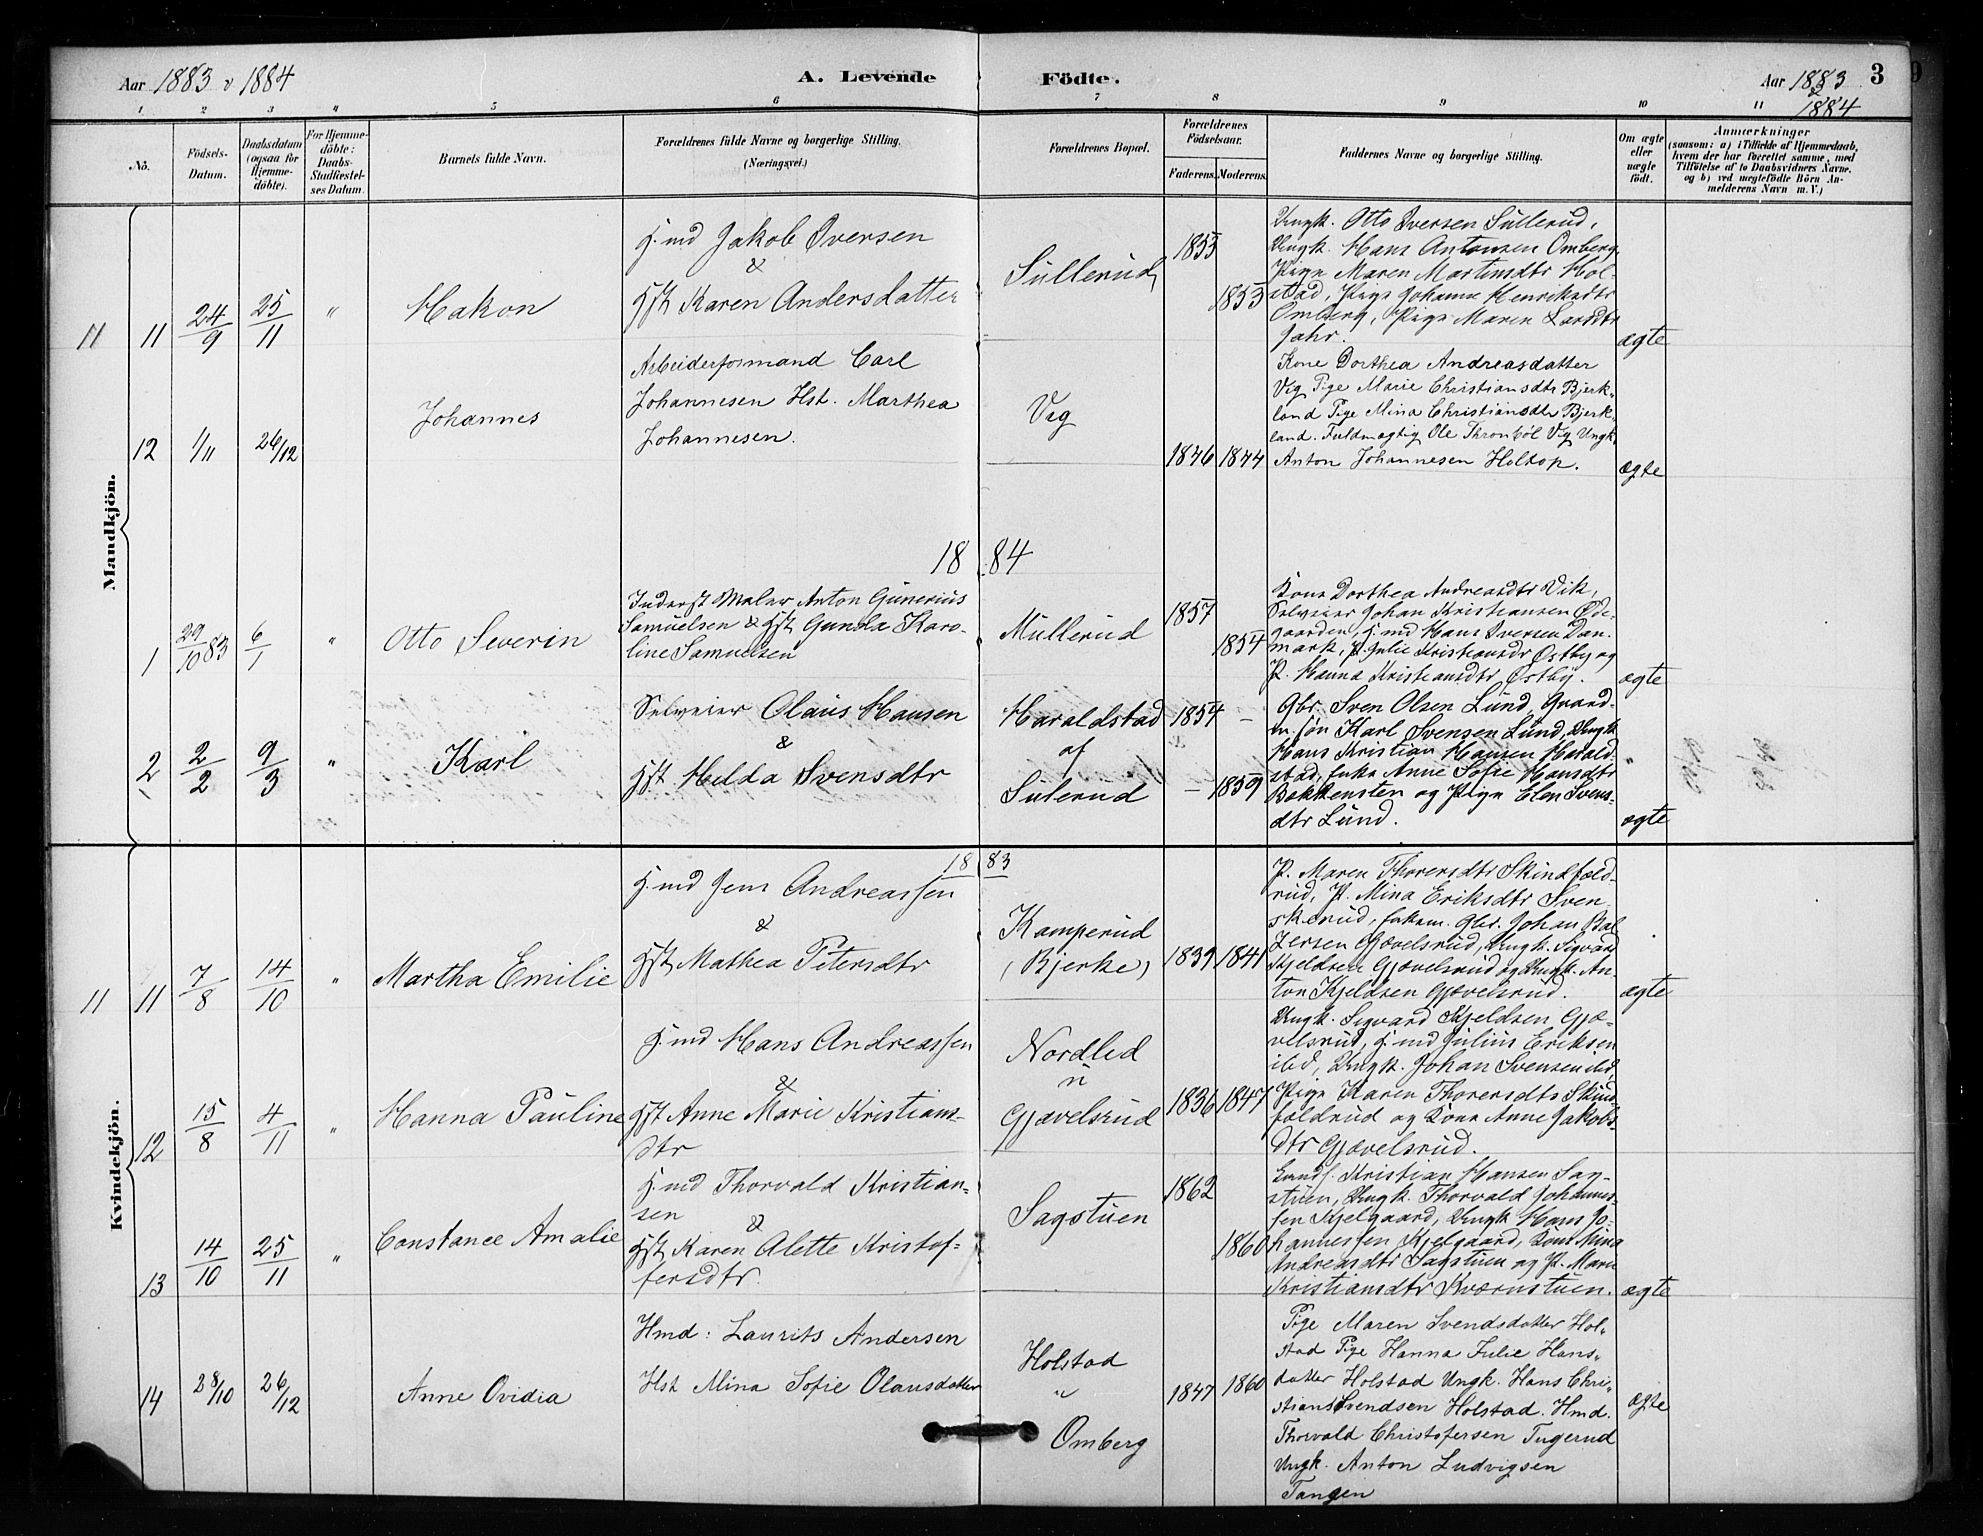 Aar 1883 & 1884
A. Levende Födte.
Aar 1883 & 1884
3
1 2 3 " 5 6 7 8 9 10 11
No.
Födsels-Datum.
Daabsdatum (ogsaa for Hjemmedöbte).
For Hjemmedöbte: Daabs-Stadfæstelses Datum.
Barnets fulde Navn.
Forældrenes fulde Navne og borgerlige Stilling.
(Næringsvei.)
Forældrenes Bopæl.
Forældrenes Födselsaar.
Faderens. Moderens.
Faddernes Navne og borgerlige Stilling.
Om ægte eller uægte födt.
Anmærkninger
(saasom: a) i Tilfælde af Hjemmedaab,
hvem der har forrettet samme, med
Tilföielse af to Daabsvidners Navne,
og b) ved uægtefödte Börn Anmelderens Navn m. V.)
Mandkjön.
11
11 24/9 25/11 "
Hakon
H.md Jakob Iversen
&
Hst Karen Andersdatter
Sullerud
1853
1853
Ungk. Otto Iversen Sullerud,
Ungk. Hans Antonsen Omberg,
Pige Maren Martinsdtr Hol-
stad, Pige Johanne Henriksdtr
Omberg, Pige Maren Larsdtr
Jahr.
ægte
12 1/11 26/12
Johannes
Arbeiderformand Carl
Johannesen Hst. Marthea
Johannesen.
Vig
1846 1844
Kone Dorthea Andreasdatter
Vig Pige Marie Christiansdtr Bjerk-
land Pige Mina Christiansdtr Bjerk-
land. Fuldmægtig Ole Thronböl Vig Ungk
Anton Johannesen Holtop.
ægte
1884
1 29/10 83 6/1 "
Otto Severin
Inderst Maler Anton Gunerius
Samuelsen & Hst Gunda Karo-
line Samuelsen
Mullerud
1857
1854
Kone Dorthea Andreasdtr Vik,
Selveier Johan Kristiansen Öde-
gaarden, H.md Hans Iversen Dan-
mark, P. Julie Kristiansdtr Östby og
P. Hanna Kristiansdtr Östby.
ægte
2 2/2 9/3 "
Karl
Selveier Olaus Hansen
&
Hst Helda Svensdtr
Haraldstad
af
Sulerud
1854 –
– 1859
Gbr. Sven Olsen Lund, Gaard-
m. sön Karl Svensen Lund, Ungk.
Hans Kristian Hansen Harald-
stad, Enke Anne Sofie Hansdtr
Bakkensten og Pige Elen Svens-
dtr Lund.
"
ægte
Kvindekjön.
1883
11
11 7/8 14/10 "
Martha Emilie
H.md Jens Andreassen
&
Hst Mathea Petersdtr
Kamperud
(Bjerke)
1839 1841
P. Maren Thorersdtr Skindfæld-
rud, P. Mina Eriksdtr Sven-
skerud, Gbr. Johan Bal
zersen Gjævelsrud, Ungk. Sigvard
Kjeldsen Gjævelsrud og Ungk. An-
ton Kjeldsen Gjævelsrud.
ægte
12 15/8 4/11 "
Hanna Pauline
H.md Hans Andreassen
&
Hst Anne Marie Kristians-
dtr
Nordled
u
Gjævelsrud
1836 1847
Ungk. Sigvard Kjeldsen Gjæ-
velsrud, H.md Julius Eriksen
ibd, Ungk. Johan Svensen ibd,
Pige Karen Thorersdtr Skind-
fældrud og Kone Anne Jakobs-
dtr Gjævelsrud.
13 14/10 25/11 "
Constance Amalie
H.md Thorvald Kristian-
sen
&
Hst Karen Alette Kristof-
fersdtr.
Sagstuen
1862
1860
Kristian Hansen Sag-
stuen, Ungk. Thorvald Johannes-
sen Kjelgaard, Ungk Hans Jo-
hannessen Kjelgaard, Kone Mina
Andreasdtr Sagstuen og P. Marie
Kristiansdtr Kværnstuen.
ægte
14 28/10 26/12
Anne Ovidia
Hmd: Laurits Andersen
Hst Mina Sofie Olausdatter
Holstad
"
Omberg
1847 1860
Pige Maren Svendsdatter Hol-
stad Pige Hanna Julie Hans-
datter Holstad Ungk. Hans Chri-
stian Svendsen Holstad. Hmd.
Thorvald Christofersen Tugerud
Ungk. Anton Ludvigsen
Tangen
ægte